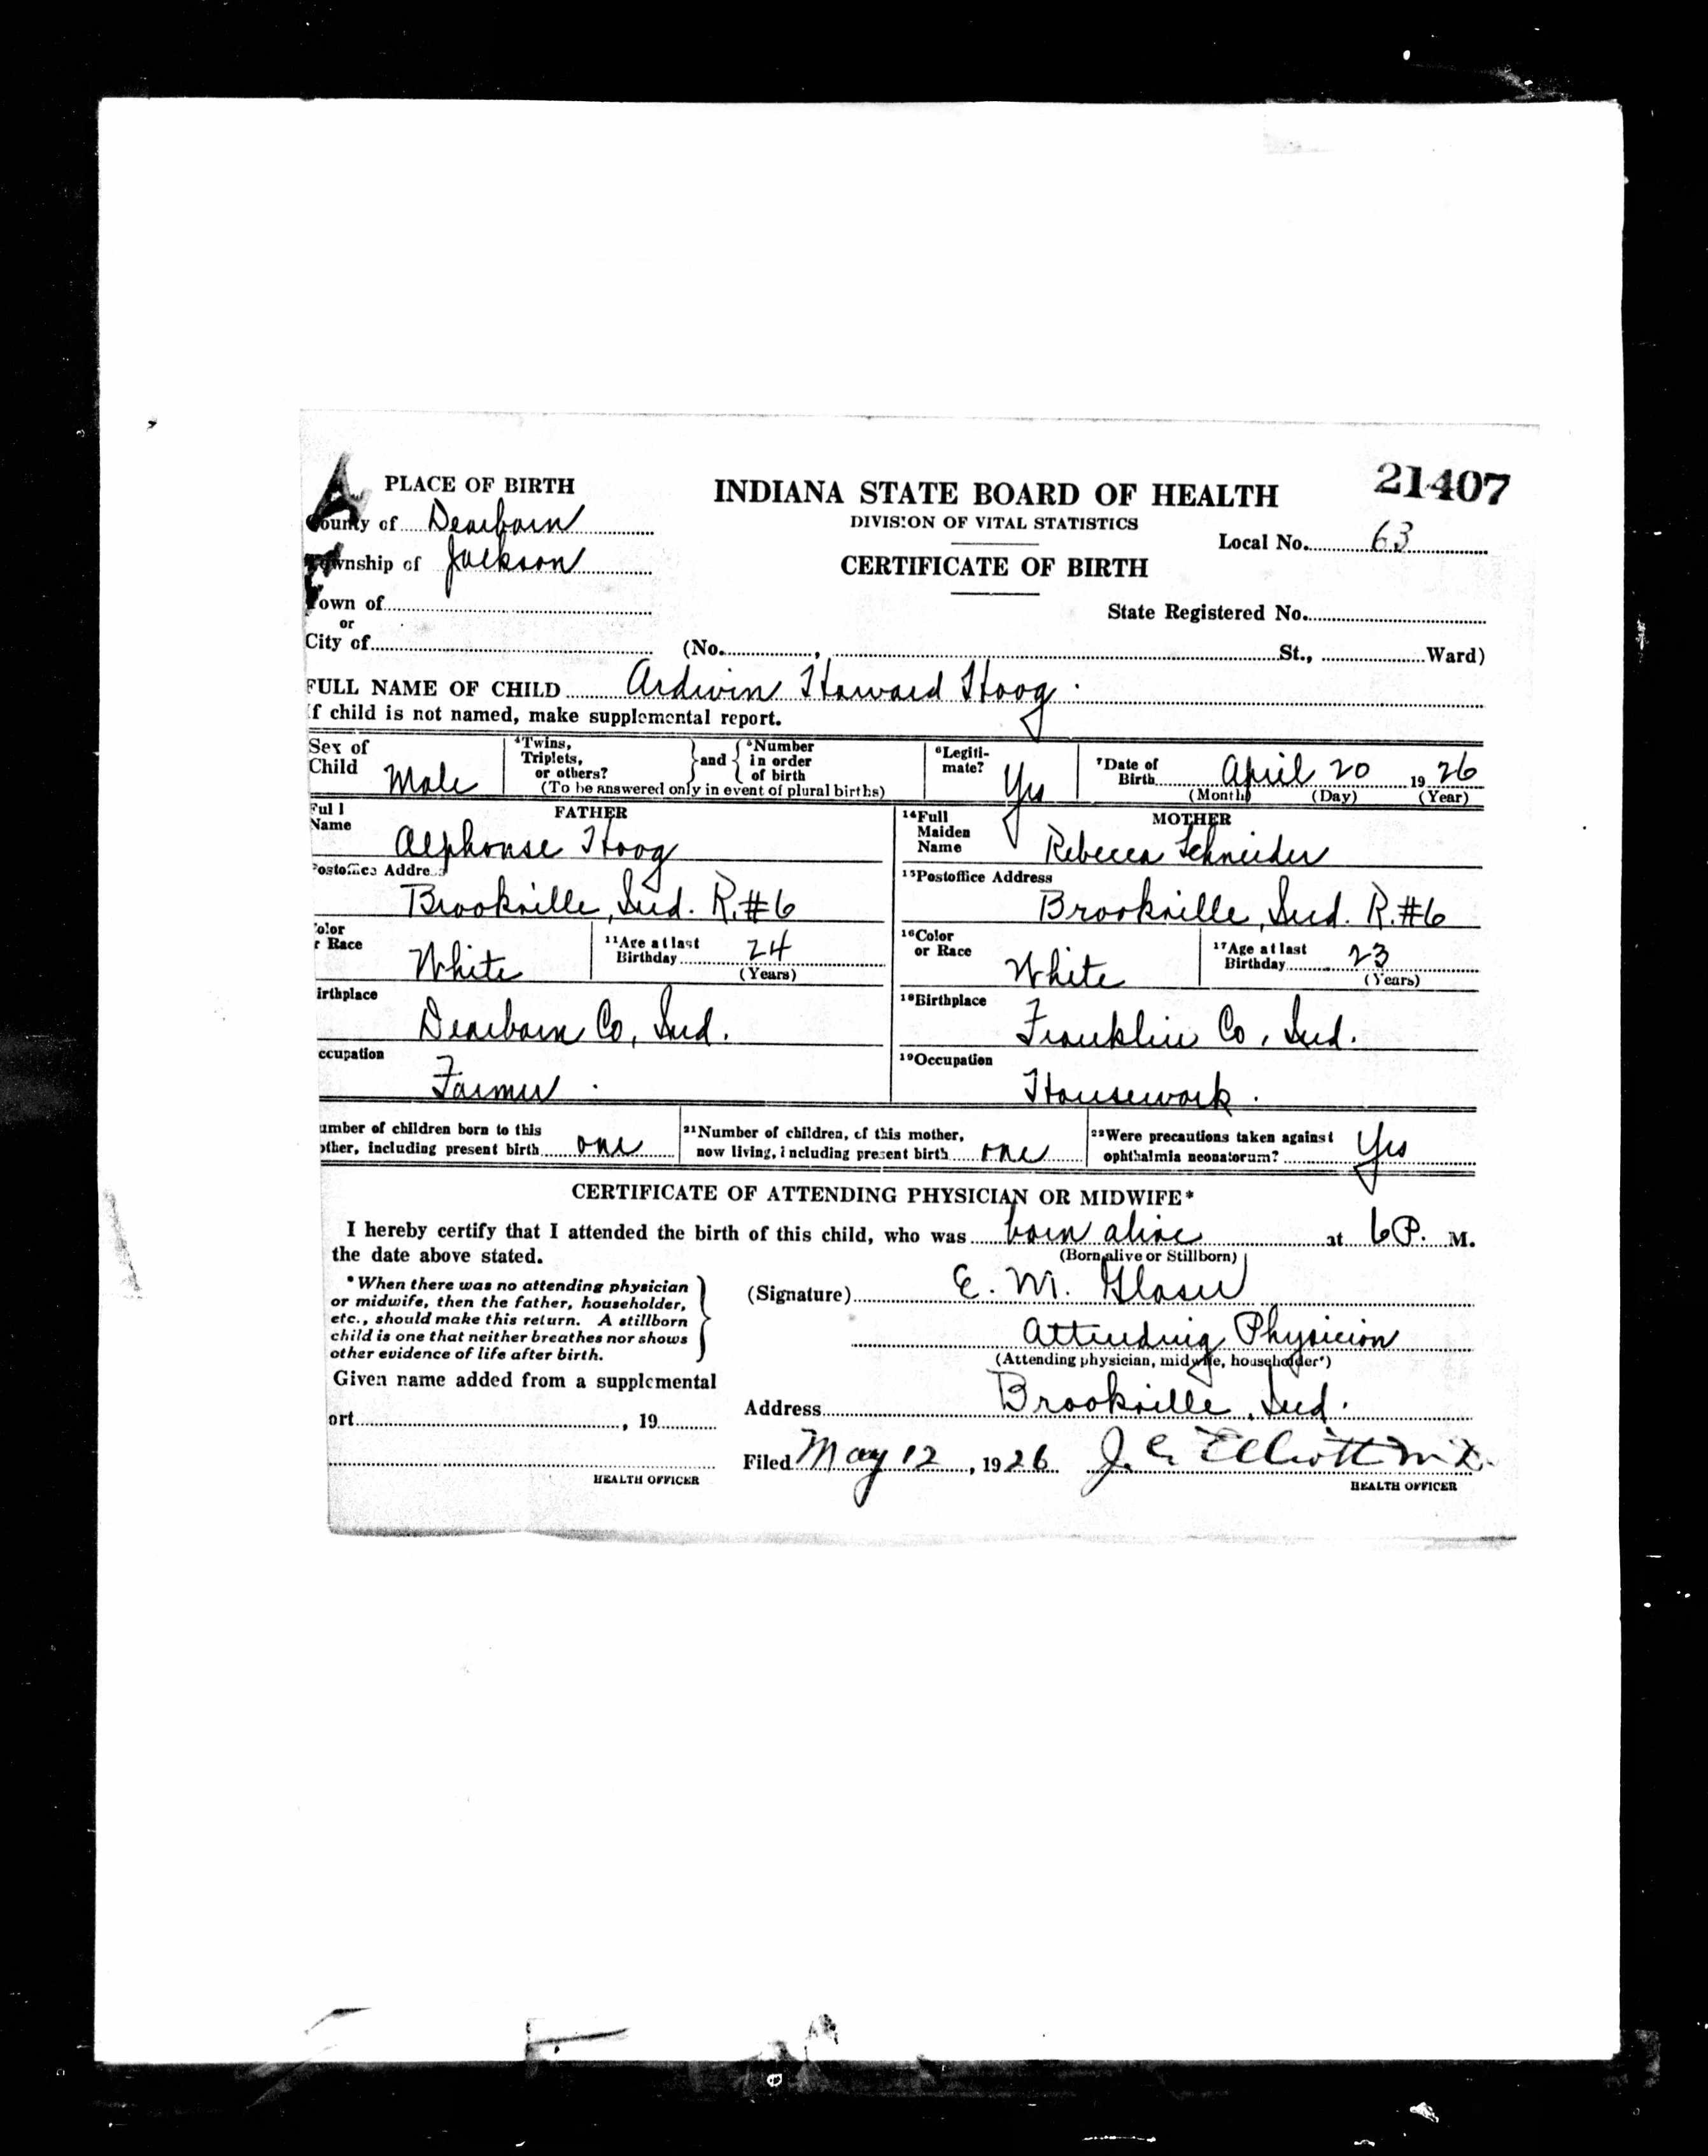 A
PLACE OF BIRTH
County of Dearborn
Township of Jackson
Town of
or
City of
INDIANA STATE BOARD OF HEALTH
DIVISION OF VITAL STATISTICS
CERTIFICATE OF BIRTH
21407
Local No. 63
State Registered No.
(No. , St., Ward)
FULL NAME OF CHILD Ardwin Howard Hoog.
If child is not named, make supplemental report.
Sex of Child Male
4Twins, Triplets, or others? } and { 5Number in order of birth
(To be answered only in event of plural births)
6Legitimate? Yes
7Date of Birth April 20 1926
(Month) (Day) (Year)
FATHER
Full Name Alphonse Hoog
14Full Maiden Name MOTHER
Rebecca Schneider
Postoffice Addre
Brookville, Ind. R.#6
15Postoffice Address
Brookville, Ind. R.#6
olor r Race White
11Age at last Birthday 24
(Years)
16Color or Race White
17Age at last Birthday 23
(Years)
irthplace
Dearborn Co, Ind.
18Birthplace
Franklin Co, Ind.
ccupation
Farmer.
19Occupation
Housework.
umber of children born to this
other, including present birth one
21Number of children, of this mother,
now living, including present birth one
22Were precautions taken against
ophthalmia neonatorum? Yes
CERTIFICATE OF ATTENDING PHYSICIAN OR MIDWIFE*
I hereby certify that I attended the birth of this child, who was born alive at 6 P. M.
(Born alive or Stillborn)
the date above stated.
*When there was no attending physician
or midwife, then the father, householder,
etc., should make this return. A stillborn
child is one that neither breathes nor shows
other evidence of life after birth.
(Signature) E. M. Glaser
Attending Physician
(Attending physician, midwife, householder*)
Given name added from a supplemental
ort , 19
HEALTH OFFICER
Address Brookville, Ind.
Filed May 12, 1926 J. C. Elliott M.D.
HEALTH OFFICER